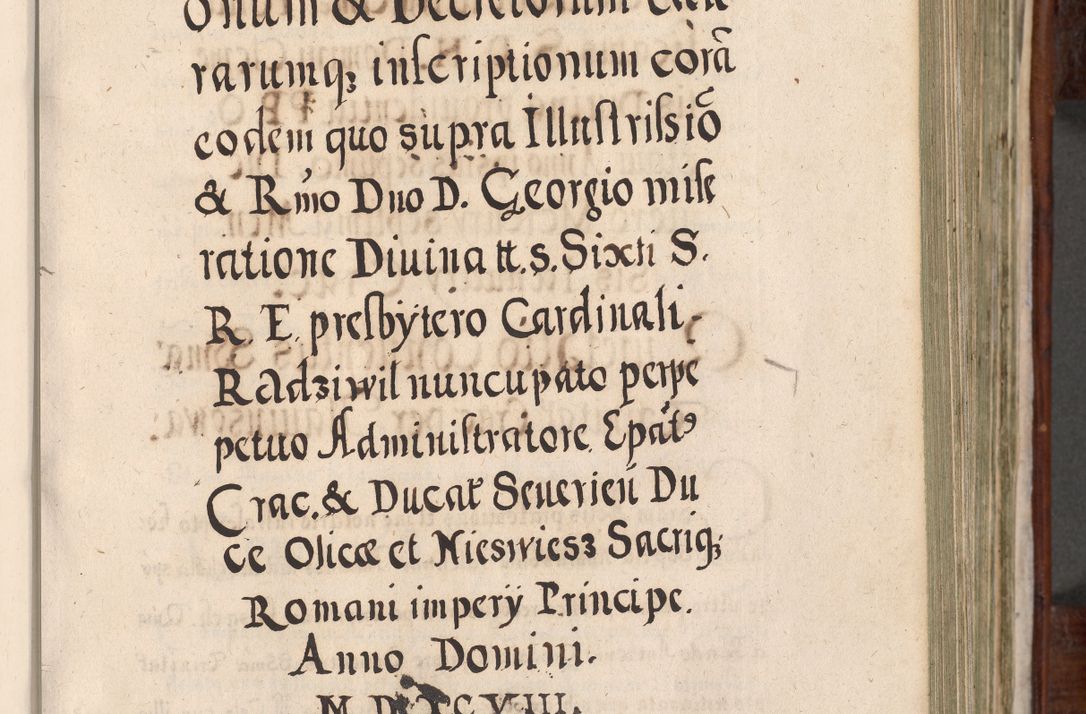 onum & Decretorum cau
rarumq; inscriptionum corā
codem quo supra Illustrissiō
& Rmo Dno D. Georgio mise
ratione Diuina tt. s. Sixti S.
R. E. presbytero Cardinali
Radziwil nuncupato perpe
petuo Administratore Epat9
Crac. & Ducat Seuerień Du
ce Olicæ et Nieswiesz Sacriq;
Romani impery Principe.
Anno Domini.